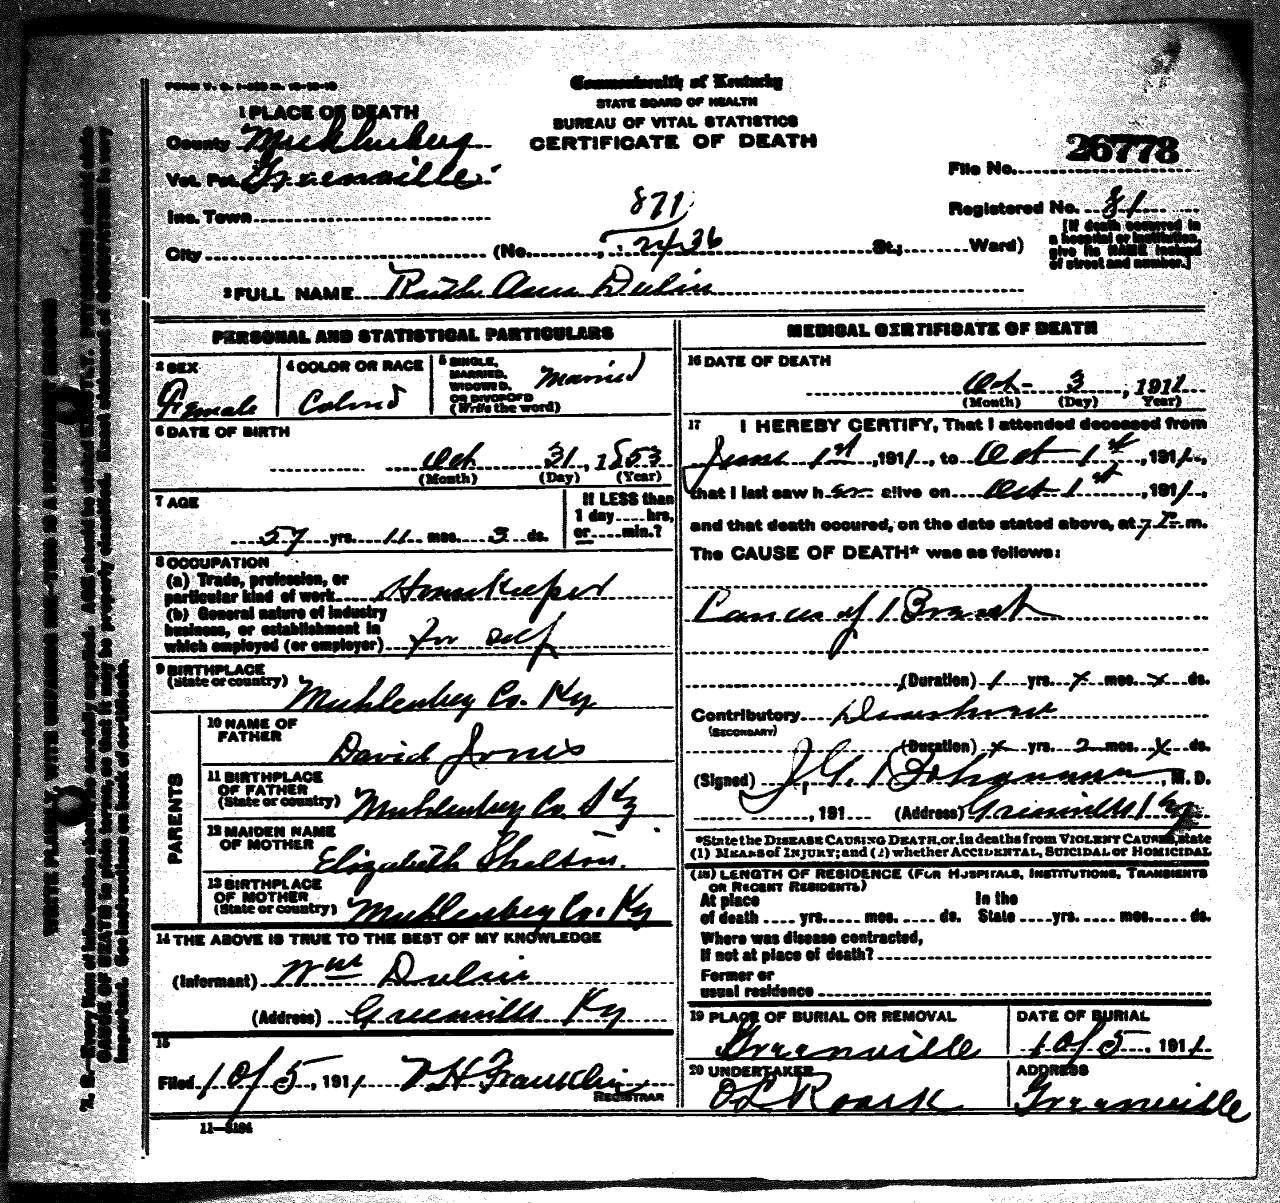 Commonwealth of Kentucky
STATE BOARD OF HEALTH
BUREAU OF VITAL STATISTICS
CERTIFICATE OF DEATH
1 PLACE OF DEATH
County Muhlenberg
Vot. Pct. Greenville
Inc. Town
City (No. St.; Ward)
871
2436
File No. 26778
Registered No. 81
[If death occurred in
a hospital or institution,
give its NAME instead
of street and number.]
2 FULL NAME Ruth Ann Dulin
PERSONAL AND STATISTICAL PARTICULARS
3 SEX Female
4 COLOR OR RACE Colored
5 SINGLE,
MARRIED,
WIDOWED,
OR DIVORCED
(Write the word) Married
6 DATE OF BIRTH
Oct 31, 1853
(Month) (Day) (Year)
7 AGE
57 yrs. 11 mos. 3 ds.
If LESS than
1 day....hrs.
or....min.?
8 OCCUPATION
(a) Trade, profession, or
particular kind of work Housekeeper
(b) General nature of industry
business, or establishment in
which employed (or employer) for self
9 BIRTHPLACE
(State or country) Muhlenberg Co. Ky
PARENTS
10 NAME OF
FATHER David Jones
11 BIRTHPLACE
OF FATHER
(State or country) Muhlenberg Co. Ky
12 MAIDEN NAME
OF MOTHER Elizabeth Shelton
13 BIRTHPLACE
OF MOTHER
(State or country) Muhlenberg Co. Ky
14 THE ABOVE IS TRUE TO THE BEST OF MY KNOWLEDGE
(Informant) Wm Dulin
(Address) Greenville Ky
15
Filed 10/5, 1911 Franklin
REGISTRAR
11—
MEDICAL CERTIFICATE OF DEATH
16 DATE OF DEATH
Oct 3, 1911
(Month) (Day) (Year)
17 I HEREBY CERTIFY, That I attended deceased from
June 1st, 1911, to Oct 1st, 1911,
that I last saw her alive on Oct 1st, 1911,
and that death occured, on the date stated above, at 7 P. m.
The CAUSE OF DEATH* was as follows:
Cancer of Breast
(Duration) 1 yrs. x mos. x ds.
Contributory
(SECONDARY)
(Duration) x yrs. 2 mos. x ds.
(Signed) J. G. Bohannon, M. D.
, 191 (Address) Greenville Ky
*State the DISEASE CAUSING DEATH, or, in deaths from VIOLENT CAUSES, state
(1) MEANS of INJURY; and (2) whether ACCIDENTAL, SUICIDAL or HOMICIDAL
(18) LENGTH OF RESIDENCE (FOR HOSPITALS, INSTITUTIONS, TRANSIENTS
OR RECENT RESIDENTS)
At place In the
of death .... yrs. .... mos. .... ds. State .... yrs. .... mos. .... ds.
Where was disease contracted,
If not at place of death?
Former or
usual residence
19 PLACE OF BURIAL OR REMOVAL Greenville
DATE OF BURIAL 10/5, 1911
20 UNDERTAKER O L Roark
ADDRESS Greenville
WRITE PLAINLY, WITH UNFADING INK—THIS IS A PERMANENT RECORD
N. B.—Every item of information should be carefully supplied. AGE should be stated EXACTLY. PHYSICIANS should state
CAUSE OF DEATH in plain terms, so that it may be properly classified. Exact statement of OCCUPATION is very
important. See instructions on back of certificate.